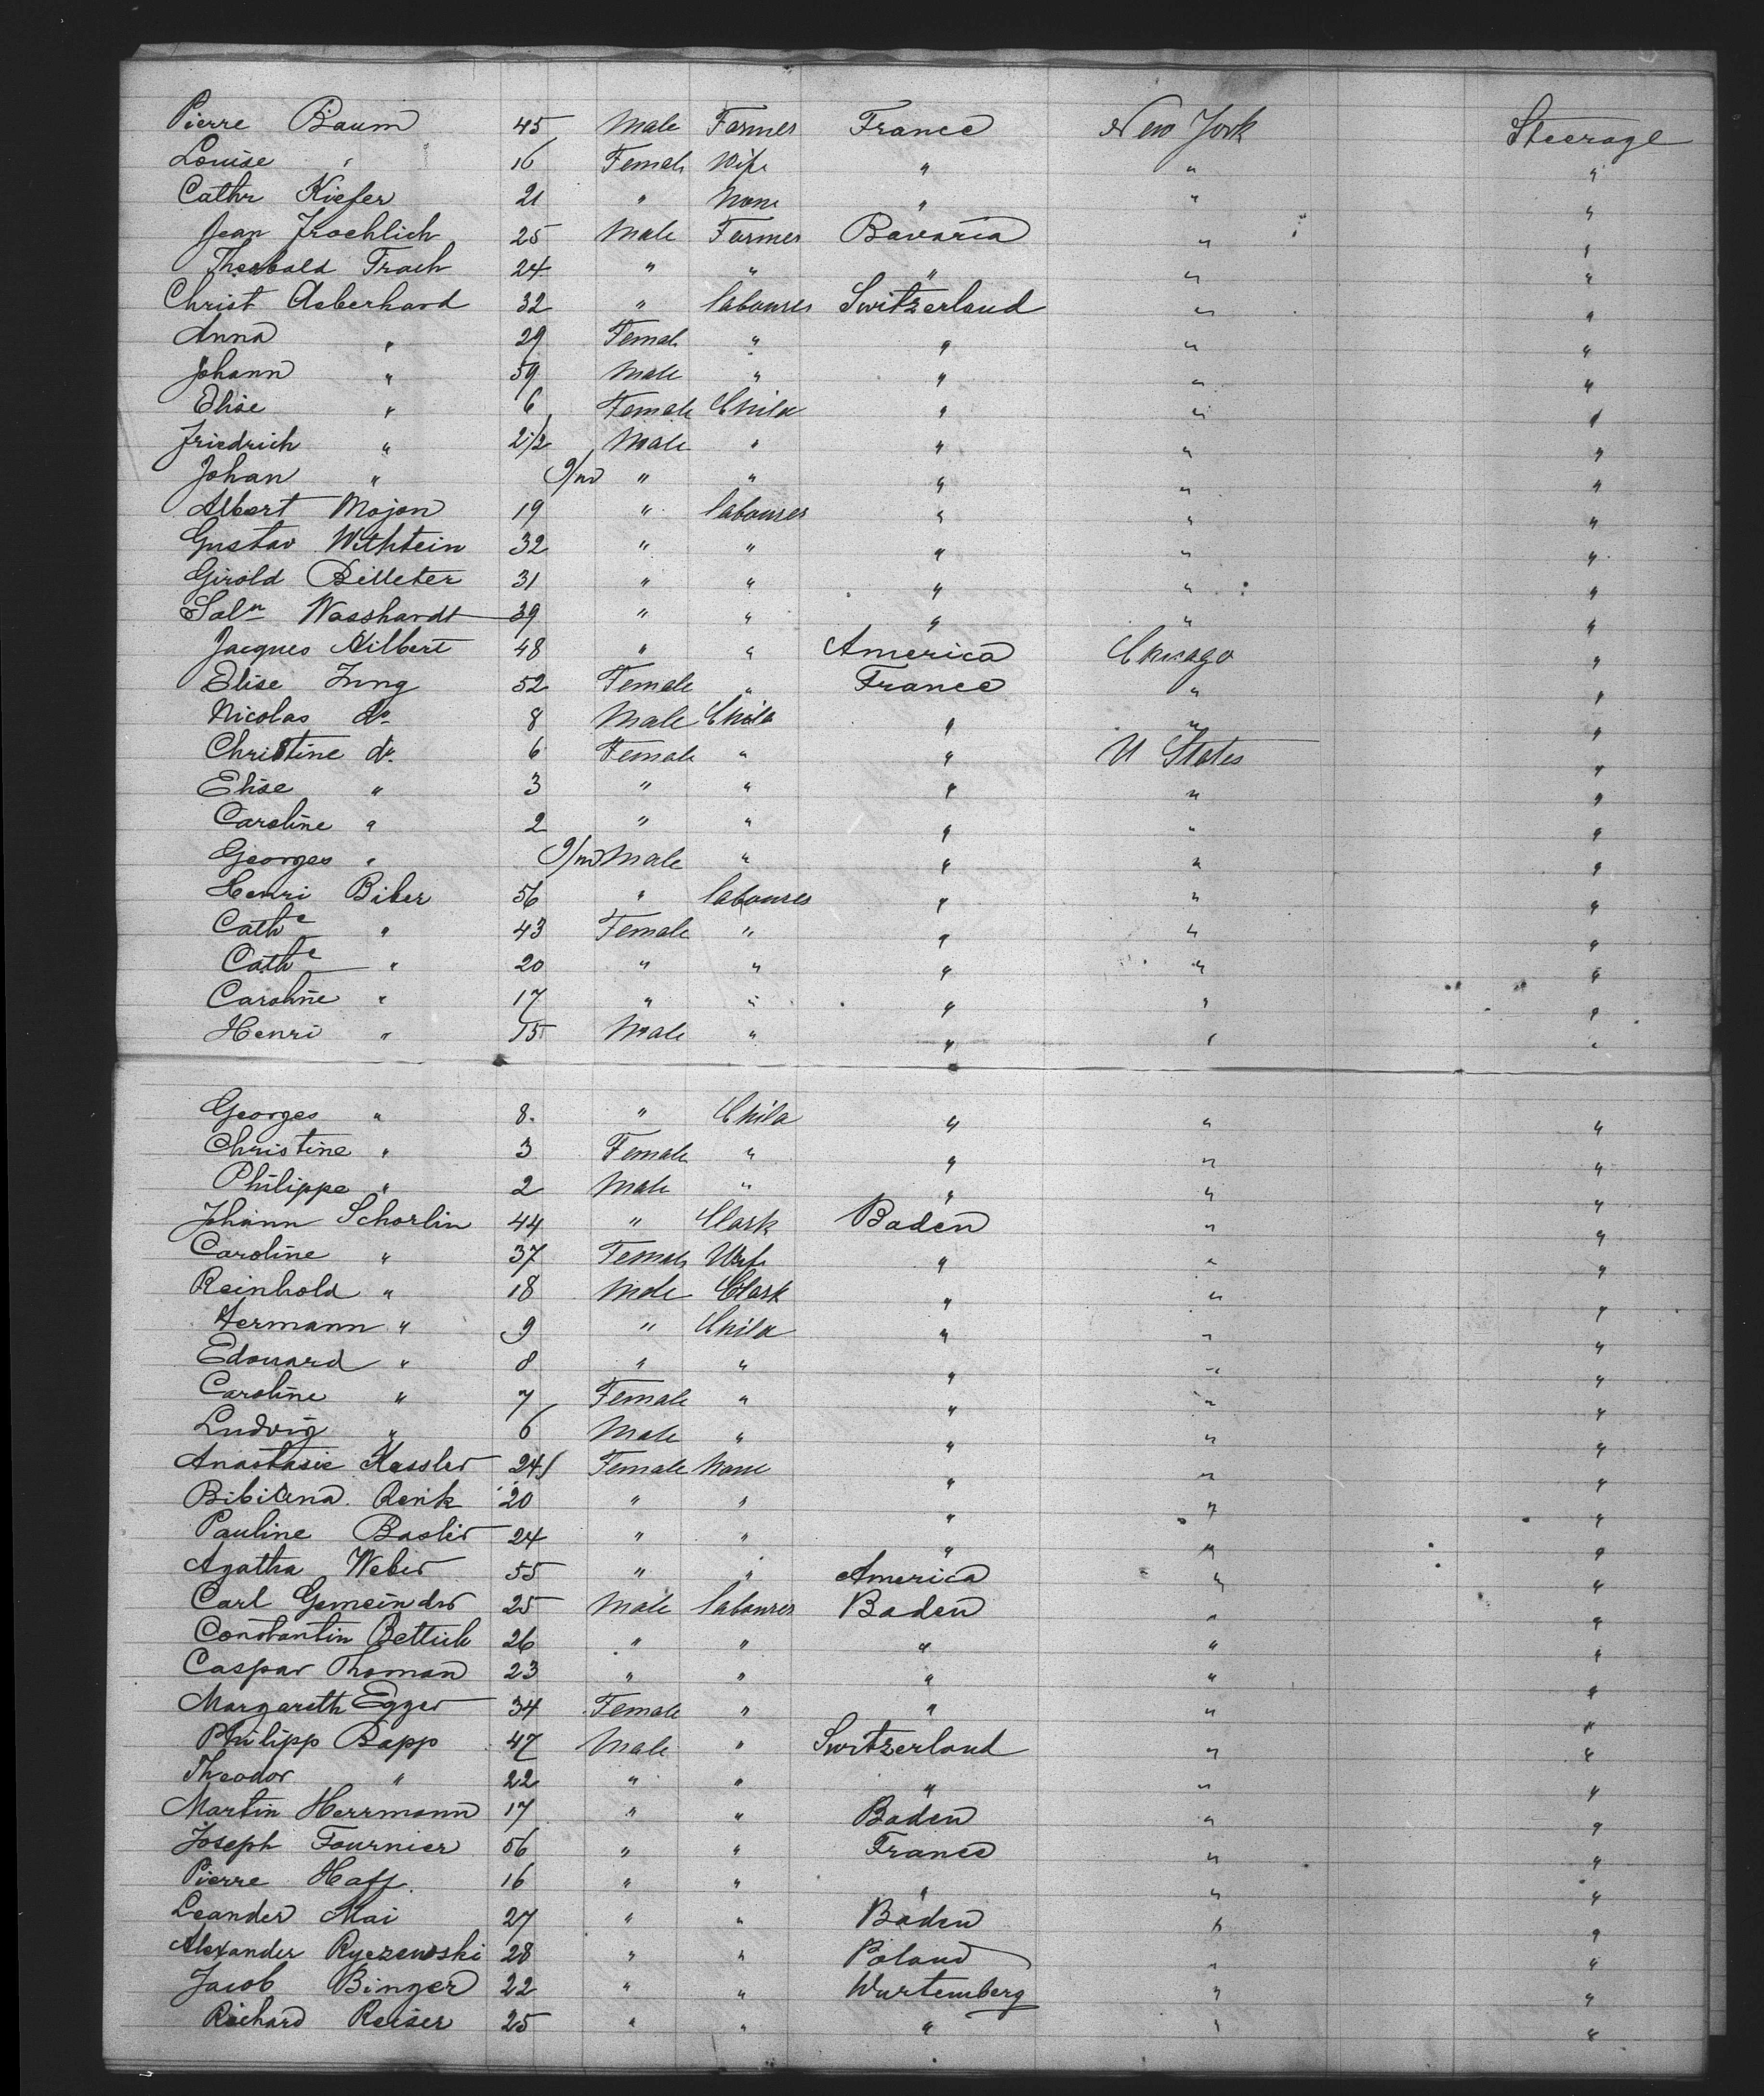 Pierre Baum 45 Male Farmer France New York Steerage
Louise " 16 Female Wife " " "
Cathr Kiefer 21 " None " " "
Jean Froehlich 25 Male Farmer Bavaria " "
Theobald Frach 24 " " " " "
Christ Aeberhard 32 " labourer Switzerland " "
Anna " 29 Female " " " "
Johann " 59 Male " " " "
Elise " 6 Female Child " " "
Friedrich " 2 1/2 Male " " " "
Johan " 9/m " " " " "
Albert Mojon 19 " labourer " " "
Gustav Withtein 32 " " " " "
Girold Billeter 31 " " " " "
Saln Wasshardt 39 " " " " "
Jacques Hilbert 48 " " America Chicago "
Elise Jung 52 Female " France " "
Nicolas do 8 Male Child " " "
Christine do 6 Female " " U States "
Elise " 3 " " " " "
Caroline " 2 " " " " "
Georges " 9/m Male " " " "
Henri Biber 56 " labourer " " "
Cathe " 43 Female " " " "
Cathe " 20 " " " " "
Caroline " 17 " " " " "
Henri " 15 Male " " " "
Georges " 8 " Child " " "
Christine " 3 Female " " " "
Philippe " 2 Male " " " "
Johann Schorlin 44 " Clark Baden " "
Caroline " 37 Female Wife " " "
Reinhold " 18 Male Clark " " "
Hermann " 9 " Child " " "
Edouard " 8 " " " " "
Caroline " 7 Female " " " "
Ludvig " 6 Male " " " "
Anastasie Kessler 24 Female None " " "
Bibiana Renk 20 " " " " "
Pauline Basler 24 " " " " "
Agatha Weber 55 " " America " "
Carl Gemeinder 25 Male labourer Baden " "
Constantin Bettich 26 " " " " "
Caspar Thoman 23 " " " " "
Margareth Egger 34 Female " " " "
Philipp Bapp 47 Male " Switzerland " "
Theodor " 22 " " " " "
Martin Herrmann 17 " " Baden " "
Joseph Fournier 56 " " France " "
Pierre Haff. 16 " " " " "
Leander Mai 27 " " Baden " "
Alexander Ryezewski 28 " " Poland " "
Jacob Binger 22 " " Wurtemberg " "
Richard Reiser 25 " " " " "